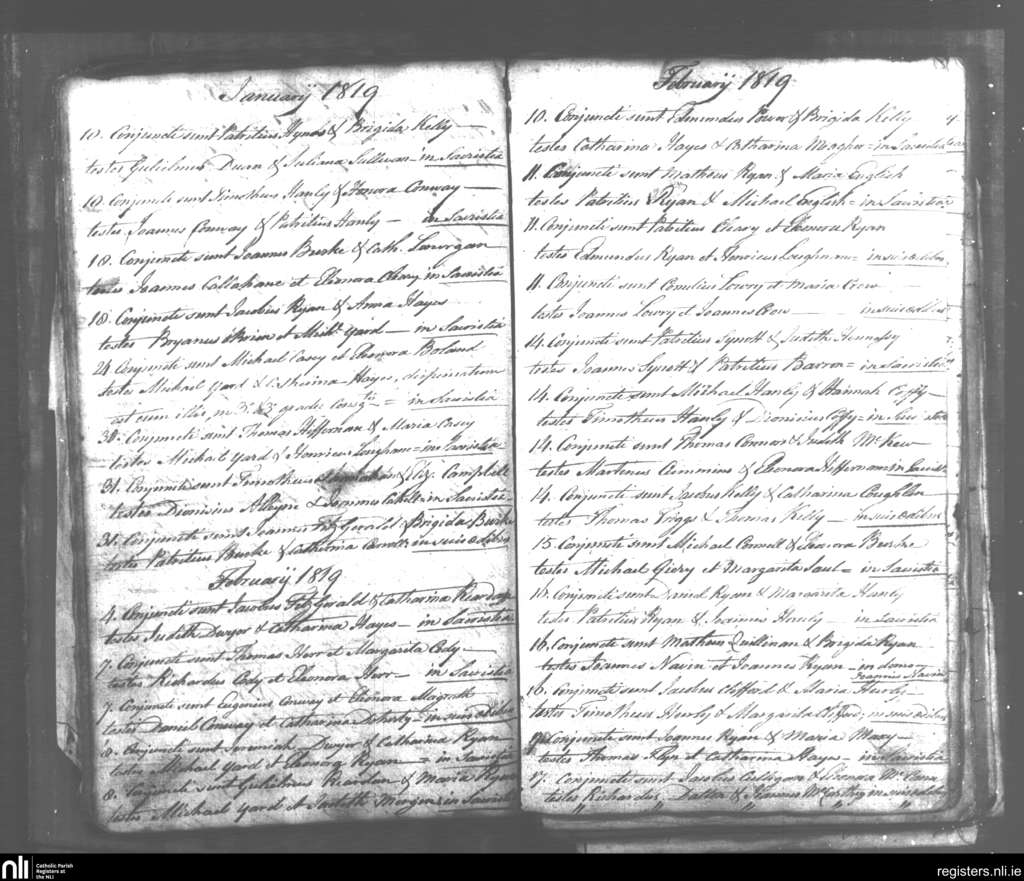 Januarÿ 1819
10. Conjuncti sunt Patritius Hynds & Brigida Kelly
testes Gulielmus Dunn & Juliana Sullivan - in Sacristia
10. Conjuncti sunt Timotheus Hanly & Honora Conway
testes Joannes Conway & Patritius Hanly - in Sacristia
18. Conjuncti sunt Joannes Burke & Cath. Lonergan
testes Joannes Callahane et Eleonora Cleary in Sacristia
18. Conjuncti sunt Jacobus Ryan & Anna Hayes
testes Bryanus óBrien et Michl. Yard - in Sacristia
24 Conjuncti sunt Michael Casey et Eleonora Boland
testes Michael Yard & Catherina Hayes, dispensatum
est cum illis, in 3º & 3º gradu = in Sacristia
30. Conjuncti sunt Thomas Heffernan & Maria Casey
testes Michael Yard & Henricus Longham = in Sacristia
31. Conjuncti sunt Timotheus & Eliz. Campbell
testes Dionisius Alleyne & Joannes Cahill in Sacristia
31. Conjuncti sunt Joannes FitzGerald & Brigida Burke
testes Patritius Burke & Catherina in suis ædibus
Februarÿ 1819
4. Conjuncti sunt Jacobus FitzGerald & Catharina Riordan
testes Judith Dwyer & Catharina Hayes - in Sacristia
7. Conjuncti sunt Thomas Herr et Margarita Cody -
testes Richardus Cody et Eleonora Herr - in Sacristia
7. Conjuncti sunt Eugenius Conway et Eleonora Magrath
testes Daniel Conway et Catharina Doherty - in suis ædibus
8. Conjuncti sunt Jeremiah Dwyer & Catharina Ryan
testes Michael Yard et Eleonora Ryan = in Sacristia
8. Conjuncti sunt Gulielmus Riordan & Maria Ryan
testes Michael Yard et Judith in Sacristia
Februarÿ 1819
10. Conjuncti sunt Edmundus Power & Brigida Kelly
testes Catharina Hayes & Catharina Meagher - in Sacristia
11. Conjuncti sunt Matheus Ryan & Maria English
testes Patritius Ryan & Michael English = in Sacristia
11. Conjuncti sunt Patritius Cleary et Honora Ryan
testes Edmundus Ryan et Henricus = in suis ædibus
11. Conjuncti sunt Cornelius Lowry et Maria Crow
testes Joannes Lowry et Joannes Crow - in suis ædibus
14. Conjuncti sunt Patritius Synott & Judith Hennessy
testes Joannes Synott & Patritius Barron = in Sacristia
14. Conjuncti sunt Michael Hanly & Hannah Coffy
testes Timotheus Hanly & Dionicius Coffy = in Sacristia
14. Conjuncti sunt Thomas Connor & Judith McKew
testes Martenus Clemmins & Eleonora Heffernan in Sacrist.
14. Conjuncti sunt Jacobus Kelly & Catharina Coughlin
testes Thomas Briggs & Thomas Kelly - in suis ædibus
15. Conjuncti sunt Michael Connell & Honora Burke
testes Michael Giery et Margarita Saul = in Sacristia
Conjuncti sunt Daniel Ryan & Margarita Hanly
testes Patritius Ryan & Joannes Hanly - in Sacristia
16. Conjuncti sunt Matheus Quillinan & Brigida Ryan
testes Joannes Navin et Joannes Ryan - in domo
Joannis Navin
16. Conjuncti sunt Jacobus Clifford & Maria Hurly -
testes Timotheus Hurly & Margarita Clifford; in suis ædibus
Conjuncti sunt Joannes Ryan & Maria Mary -
testes Thomas Ryan et Catharina Hayes - in Sacristia
17. Conjuncti sunt Jacobus Caligan & Honora
testes Richardus Dalton & McCarthy in suis ædibus
nli Catholic Parish
Registers at
the NLI
registers.nli.ie